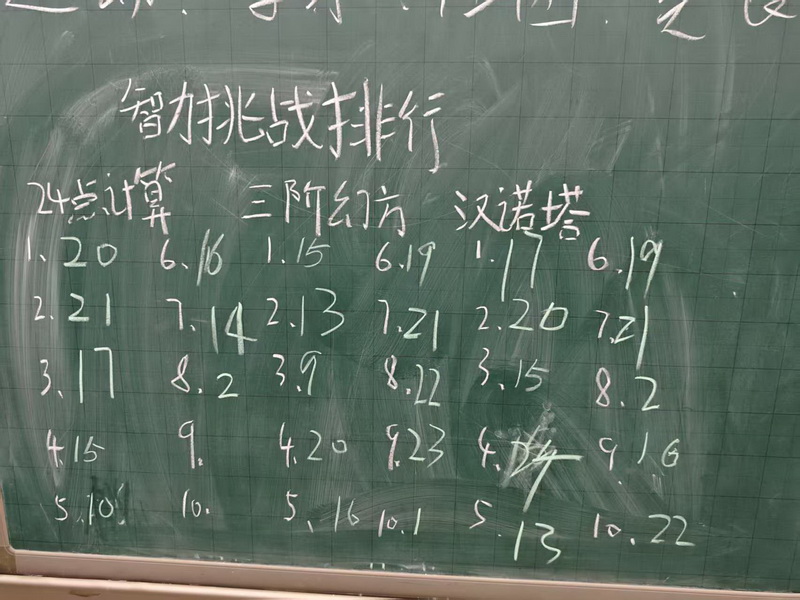 智力挑战排行
24点计算 三阶幻方 汉诺塔
1. 20 6. 16 1. 15 6. 19 1. 17 6. 19
2. 21 7. 14 2. 13 7. 21 2. 20 7. 21
3. 17 8. 2 3. 9 8. 22 3. 15 8. 2
4. 15 9. 4. 20 9. 23 4. 9. 16
5. 10 10. 5. 16 10. 1 5. 13 10. 22